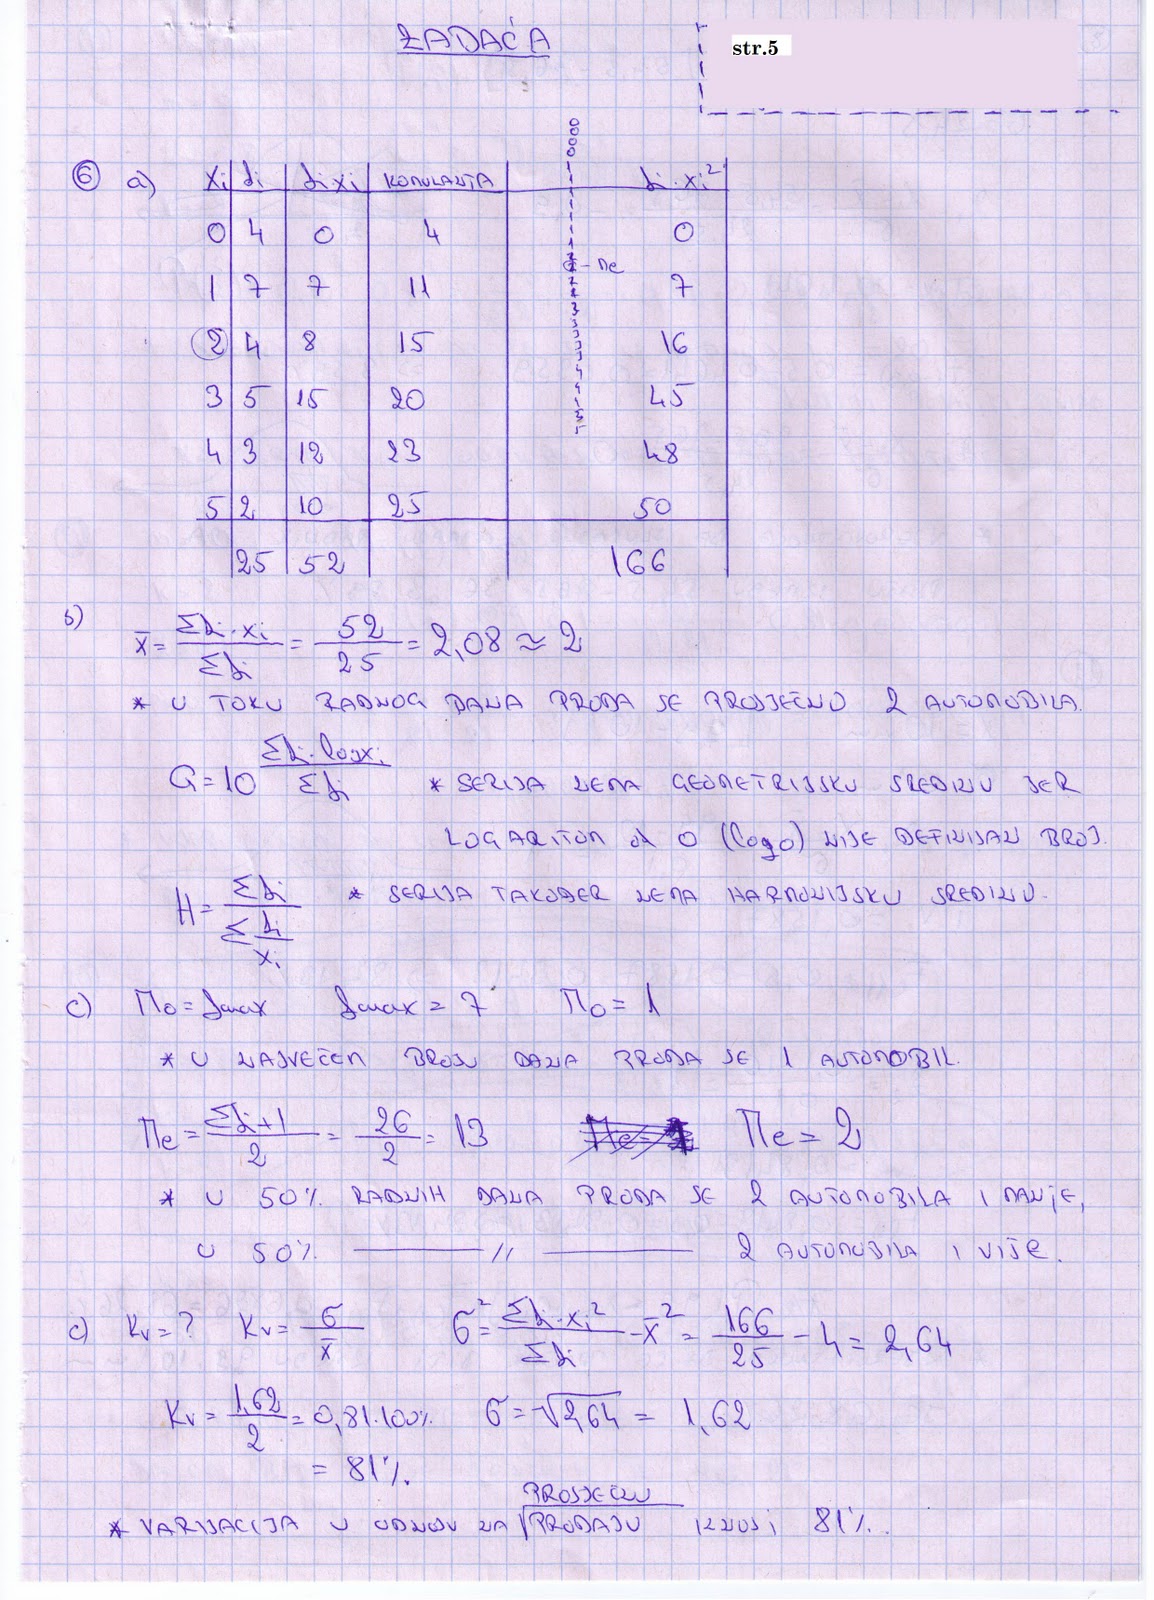 ZADAĆA
str.5
6 a) xi fi fi xi KOMULANTA fi·xi²
0 4 0 4 0
1 7 7 11 7
2 4 8 15 16
3 5 15 20 45
4 3 12 23 48
5 2 10 25 50
25 52 166
Me
b)
x̄ = Σfi·xi / Σfi = 52/25 = 2,08 ≈ 2
* U TOKU RADNOG DANA PRODA SE PROSJEČNO 2 AUTOMOBILA.
G = 10^(Σfi·logxi / Σfi) * SERIJA NEMA GEOMETRIJSKU SREDINU JER
LOGARITAM od 0 (log0) NIJE DEFINISAN BROJ.
H = Σfi / Σ(fi/xi) * SERIJA TAKOĐER NEMA HARMONIJSKU SREDINU.
c) Mo = fmax fmax = 7 Mo = 1
* U NAJVEĆEM BROJU DANA PRODA SE 1 AUTOMOBIL.
Me = (Σfi+1)/2 = 26/2 = 13 Me = 2
* U 50% RADNIH DANA PRODA SE 2 AUTOMOBILA I MANJE,
U 50% ——— // ——— 2 AUTOMOBILA I VIŠE.
c) Kv = ? Kv = σ/x̄ σ² = Σfi·xi² / Σfi - x̄² = 166/25 - 4 = 2,64
Kv = 1,62/2 = 0,81·100% σ = √2,64 = 1,62
= 81%.
PROSJEČNU
* VARIJACIJA U ODNOSU NA PRODAJU IZNOSI 81%.